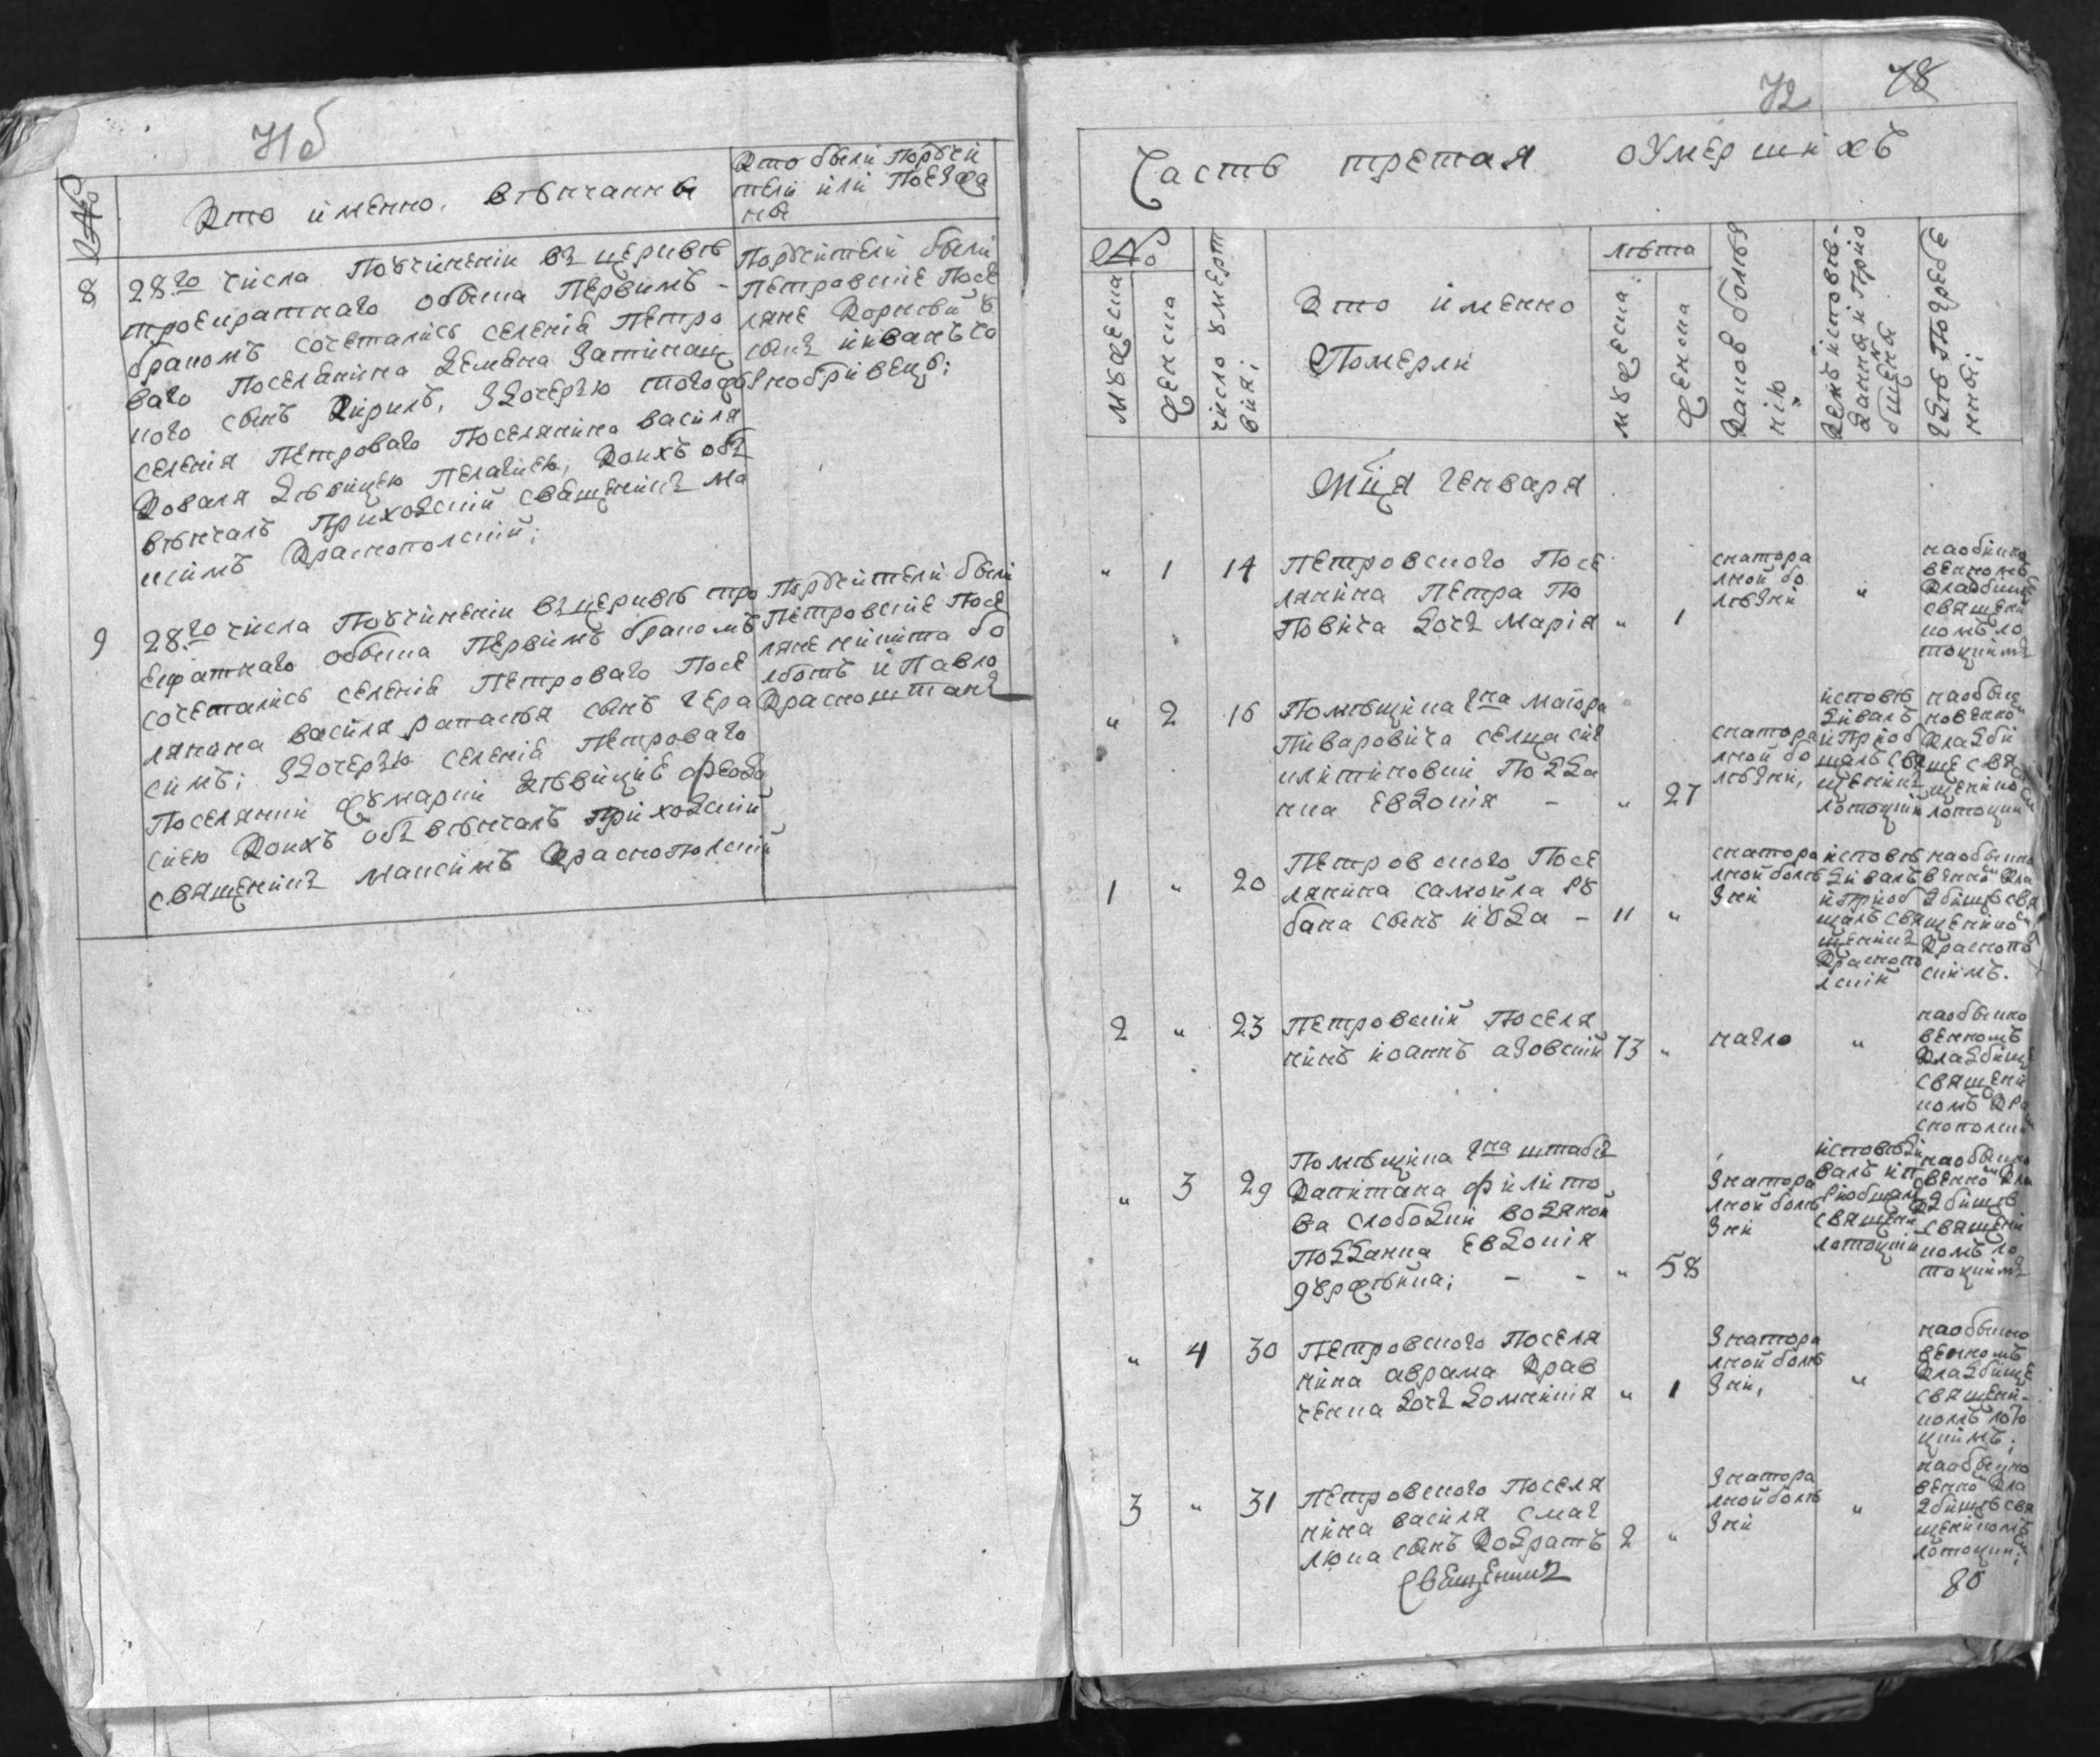 71б
№
Кто именно. вѣнчанны
Кто были поручи
тели или поезжа
ны
8
28го числа Поучинении въ церквѣ
троекратнаго обыска Первимъ –
бракомъ сочетались селенія Петро
ваго Поселянина
ного сынъ Кирилъ, Здочерью тогожъ
селенія Петроваго Поселянина василя
Коваля Дѣвицею Пелагіею, Коихъ обѣ
вѣнчалъ Приходскій священникъ Ма
ксимъ Краснополскій;
Поручители были
Петровские Посе
ляне Корнѣй
и иванъ
9
28го числа Поучинении въ церквѣ тро
екратнаго обыска Первимъ бракомъ
сочетались селенія Петроваго Посе
лянина василя сынъ Гера
симъ; Здочерью селенія Петроваго
Поселянки дѣвицию феодо
сиею Коихъ обѣ вѣнчалъ Приходский
священникъ Максимъ Краснополский
Поручители были
Петровские Посе
ляне никита бо
и Павло
72 78
Часть третая оумершихъ
№
мужеска
женска
число умерт
вия;
Кто именно
Померли
лѣта
мужеска:
женска
Какою болѣз
нію
Кемъ исповѣ-
данны и Прио
бщены
гдѣ Погребе
нны;
Мца генваря
" 1 14 Петровского Посе
лянина Петра По
повича дочъ Марія " 1
снатора
лной бо
лѣзни
"
наобыкно
венномъ
кладбище
священи
комъ ло
тоцкимъ
" 2 16 Помѣщика гна Маіора
Пиваровича селца
Подда
нка Евдокія – " 27
снатора
лной бо
лѣзни,
исповѣ
дивалъ
и приоб
щалъ свя
щеникъ
лотоцкий
наобык
новенно
кладби
ще свя
щенико
лотоцки
1 " 20 Петровского Посе
лянина самойла Ру
бана сынъ иуда – 11 "
снатора
лной болѣ
зни
исповѣ
дивалъ
и приоб
щалъ свя
щеникъ
Краснопо
лский
наобыкно
венно кла
дбищѣ свя
щенико
Краснопо
скимъ.
2 " 23 Петровский Поселя
нинъ иоаннъ азовский 73 "
нагло
"
наобыкно
венномъ
кладбище
священи
комъ Кра
снополски
" 3 29 Помѣщика гна штабъ
Капитана филипо
ва слободки водяной
Подданка Евдокія
журжѣвна; – – " 58
Знатора
лной болѣ
зни
исповѣди
валъ и п
риобщалъ
священи
лотоцкий
наобыкно
венно кла
дбищѣ
священи
комъ ло
тоцкимъ
" 4 30 Петровского Поселя
нина аврама Крав
ченка дочъ домникія " 1
Знатора
лной болѣ
зни,
"
наобыкно
венномъ
кладбище
священи-
комъ лото
цкимъ;
3 " 31 Петровского Поселя
нина василя смаг
люка сынъ Кодратъ 2 "
Знатора
лной болѣ
зни
"
наобыкно
венно кла
дбищѣ свя
щеникомъ
лотоцки;
Священникъ
80